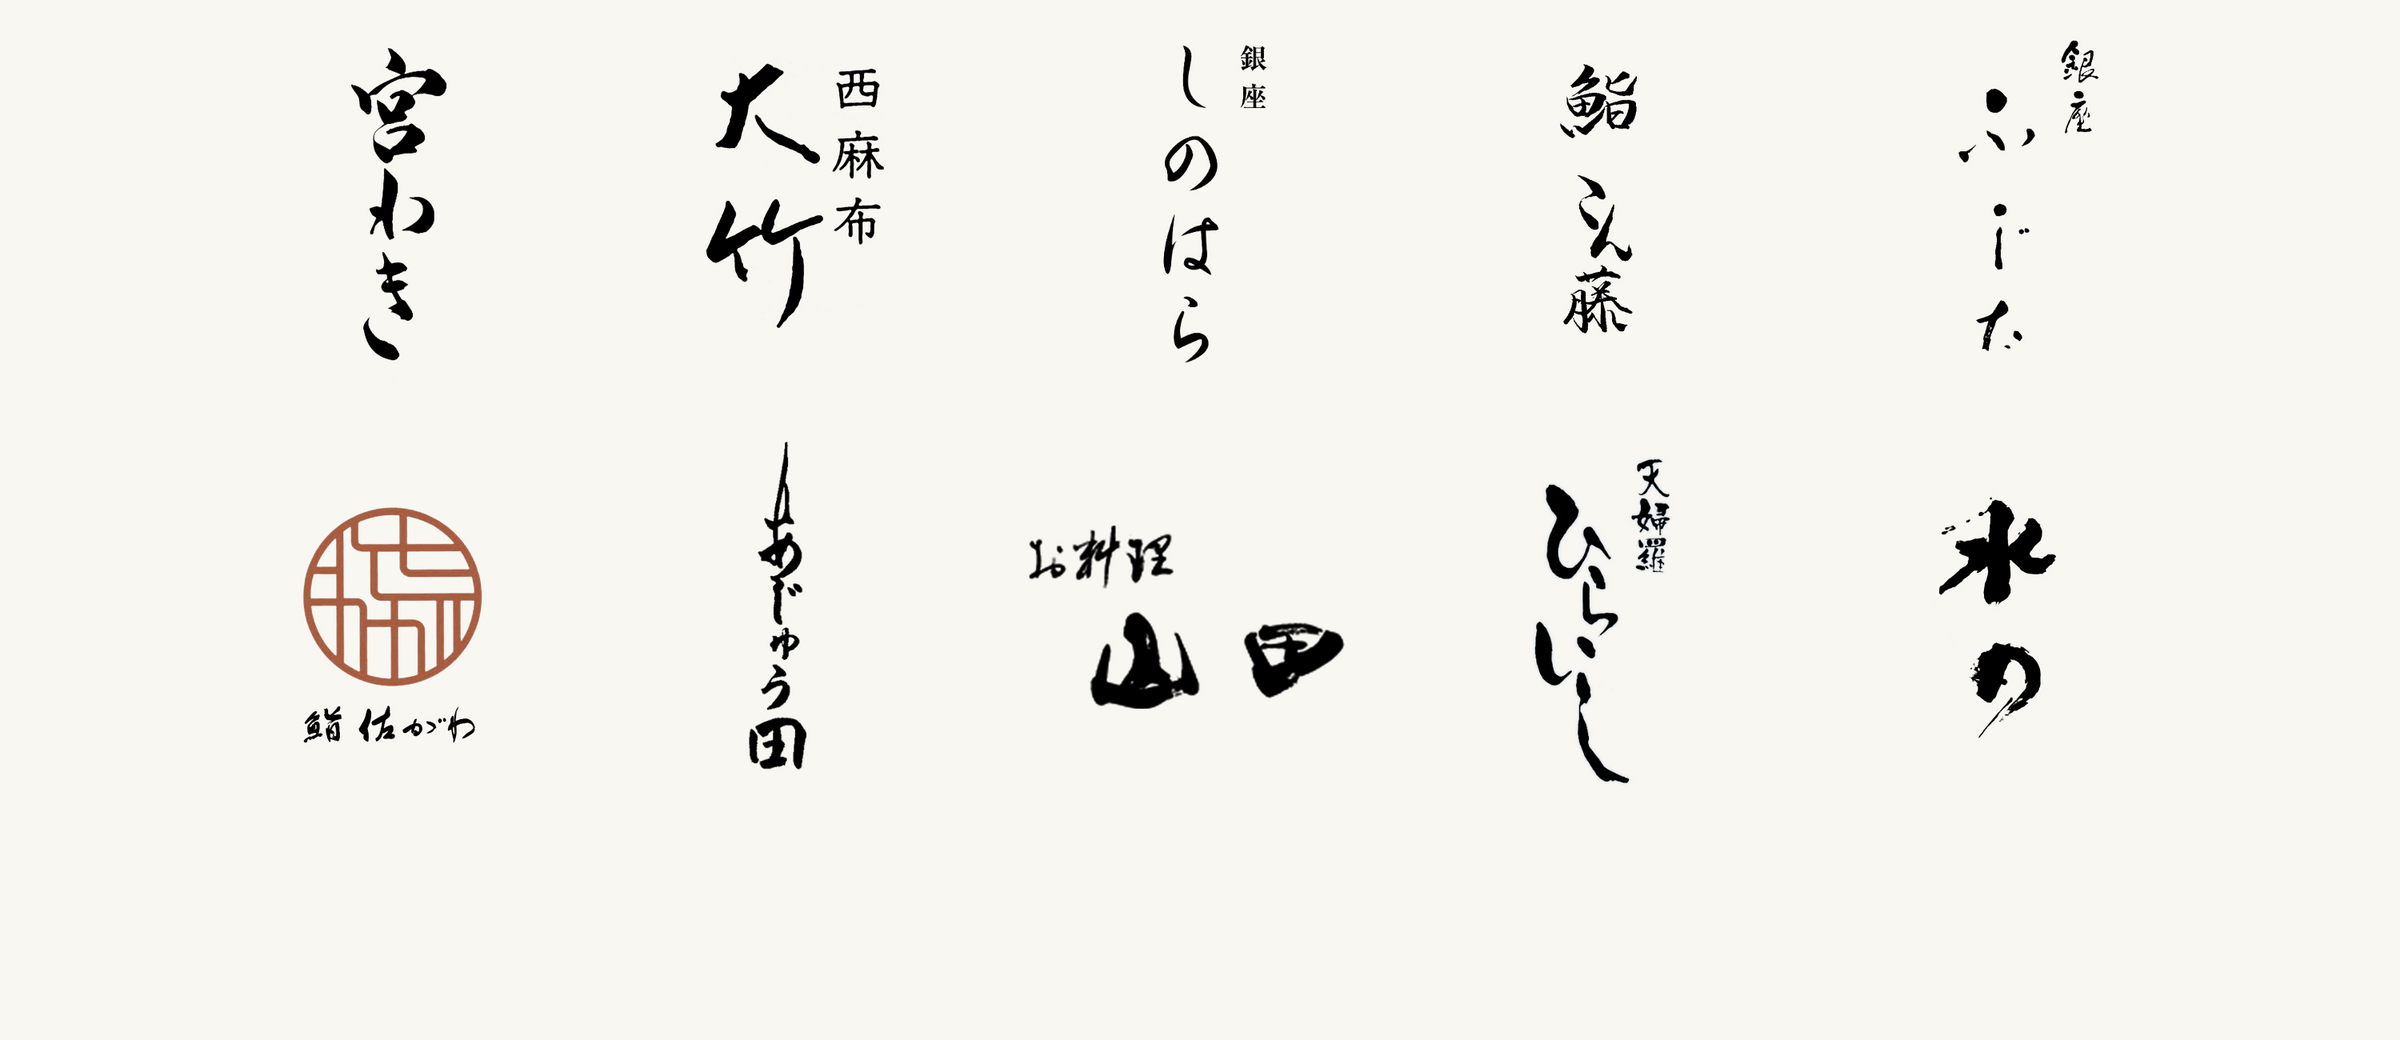 宮わき
西麻布
大竹
銀座
しのはら
鮨
こん藤
銀座
ふじた
鮨 佐がわ
あじゅう田
お料理
山田
天婦羅
ひらいし
水の